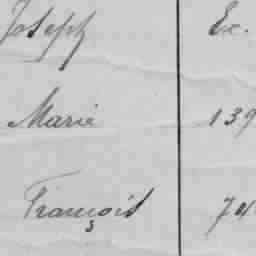 Joseph Ex.
Marie 139
François 74